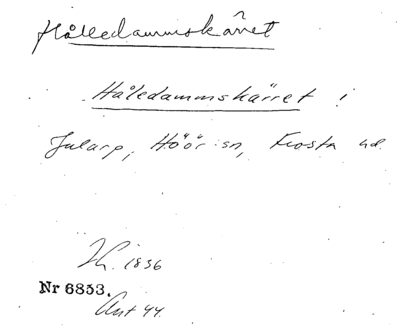 Hålledammskärret
Håledammskärret i
Jularp, Höör sn, Frosta hd.
1836
Nr 6853.
Ant 44.